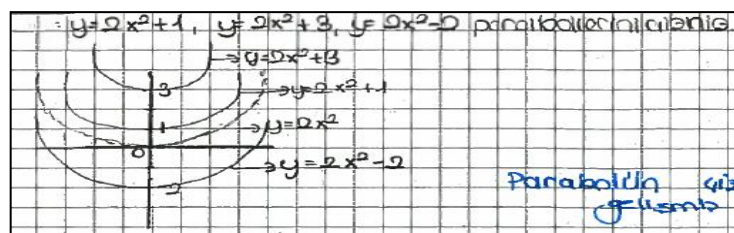 : y=2x²+1, y=2x²+3, y=2x²-2 parabollerini çizeriz
y=2x²+3
3
y=2x²+1
1
y=2x²
0
y=2x²-2
-2
Parabolün